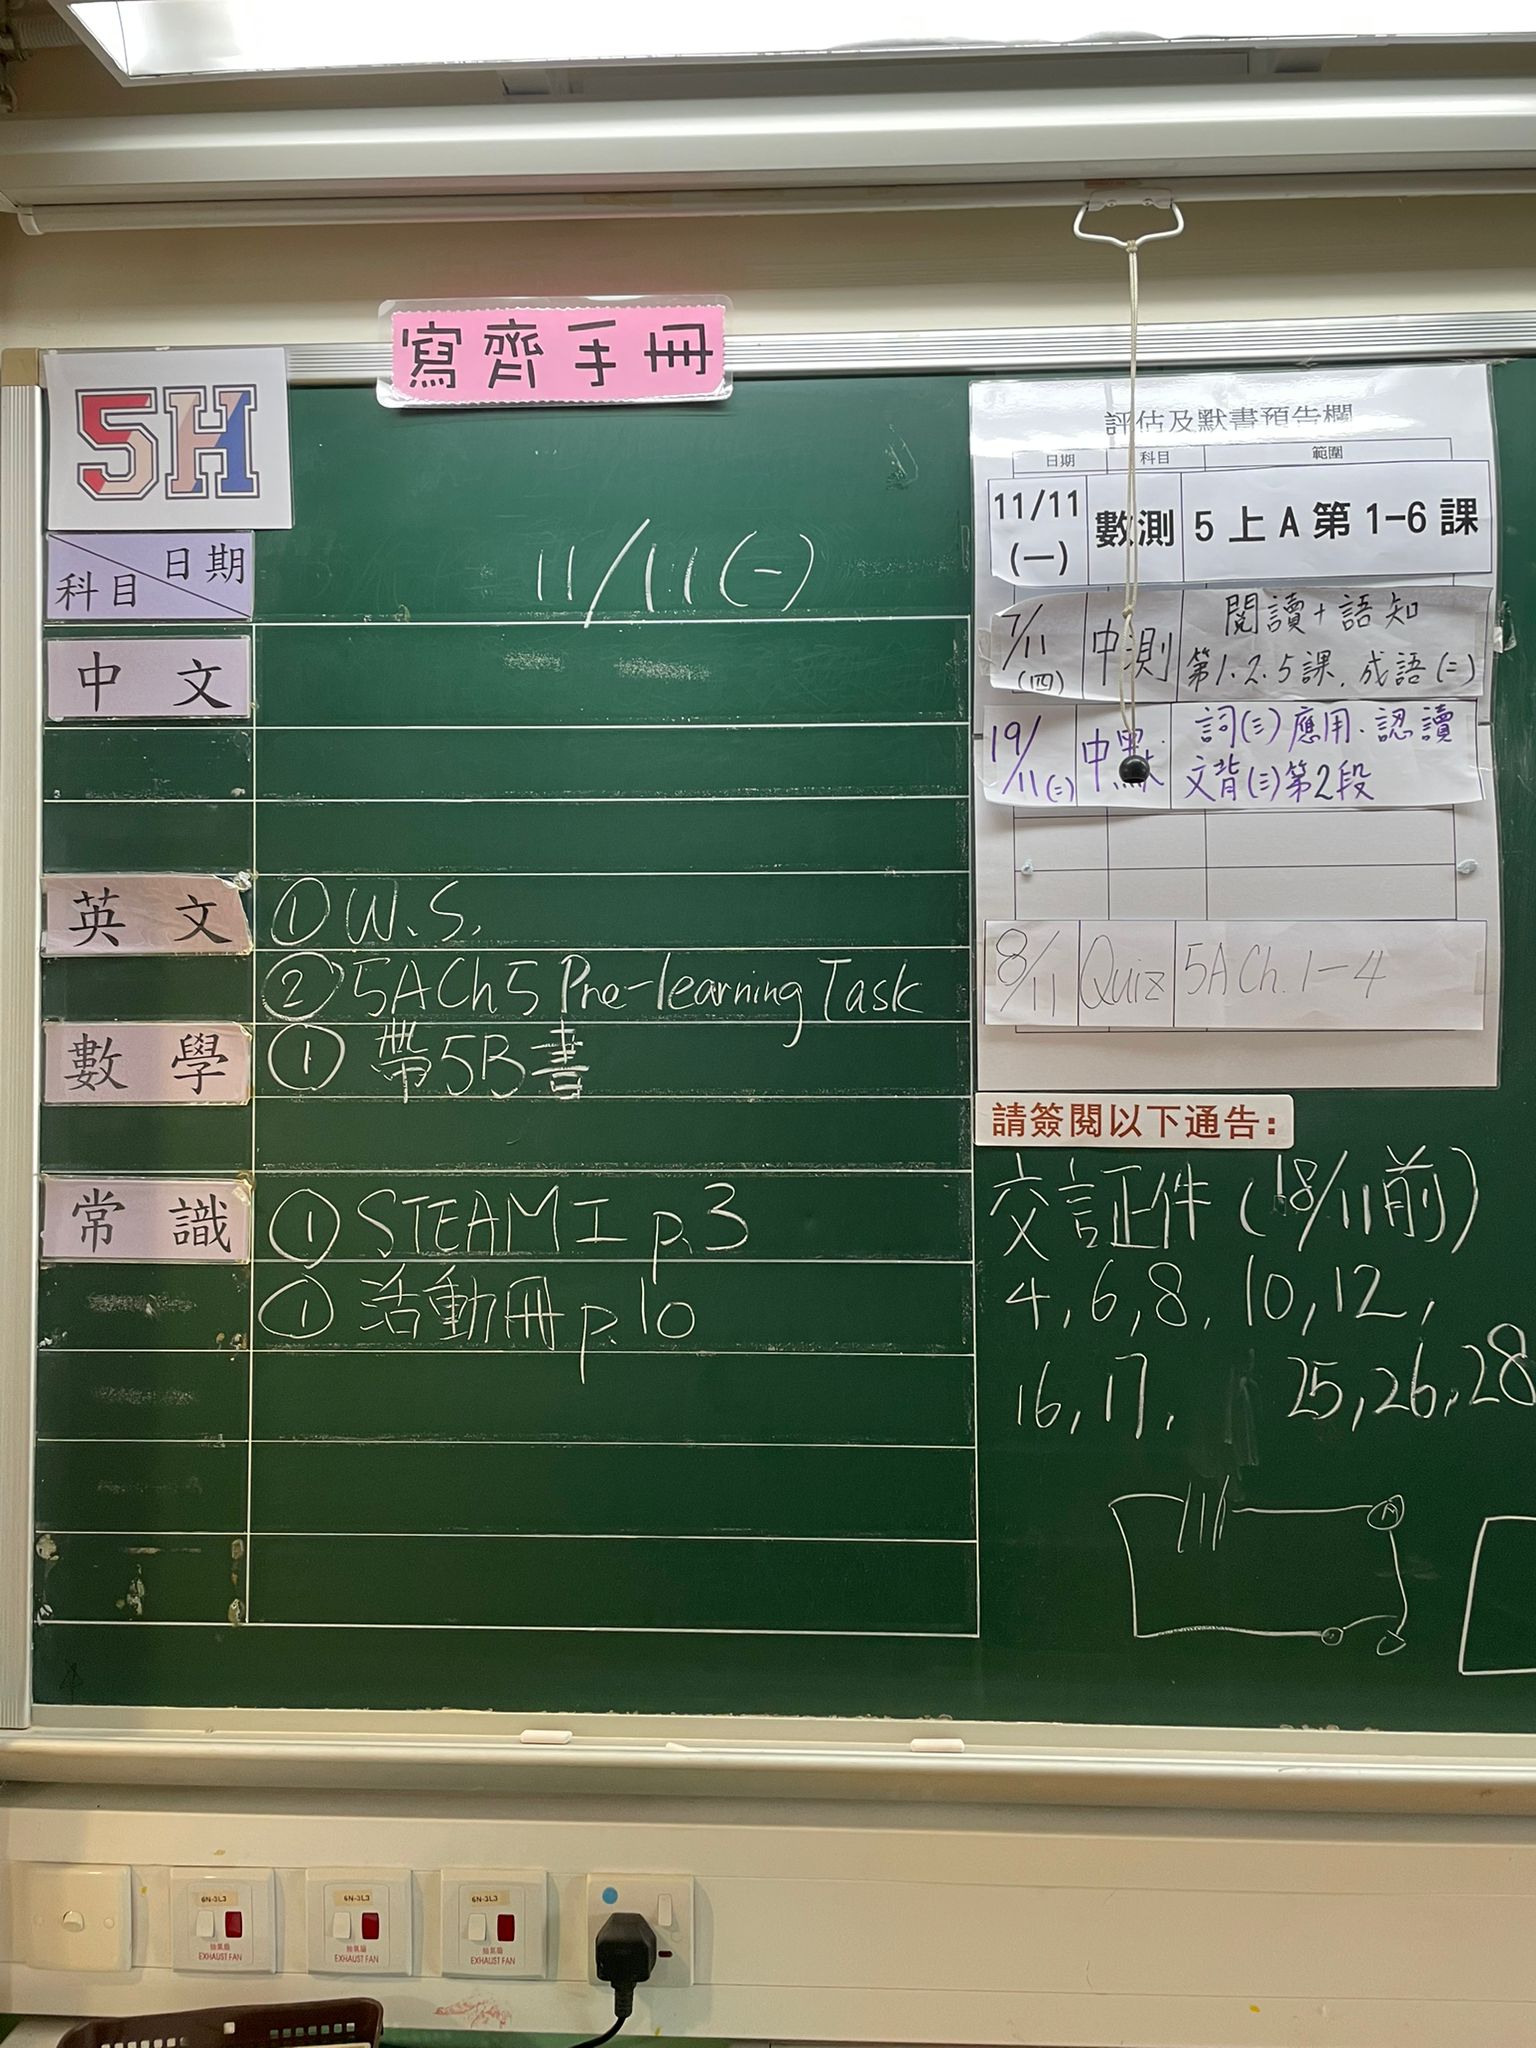 寫齊手冊
5H
日期
科目
11/11(一)
中文
英文
①W.S.
②5A Ch5 Pre-learning Task
數學
①帶5B書
常識
①STEAM I p.3
①活動冊p.10
評估及默書預告欄
日期 科目 範圍
11/11(一) 數測 5上A第1-6課
7/11(四) 中測 閱讀+語知
第1.2.5課.成語(二)
19/11(二) 中默 詞(三)應用.認讀
文背(三)第2段
8/11 Quiz 5A Ch.1-4
請簽閱以下通告:
交証件(18/11前)
4,6,8,10,12,
16,17, 25,26,28
A
6N-3L3 6N-3L3 6N-3L3
抽氣扇 抽氣扇 抽氣扇
EXHAUST FAN EXHAUST FAN EXHAUST FAN